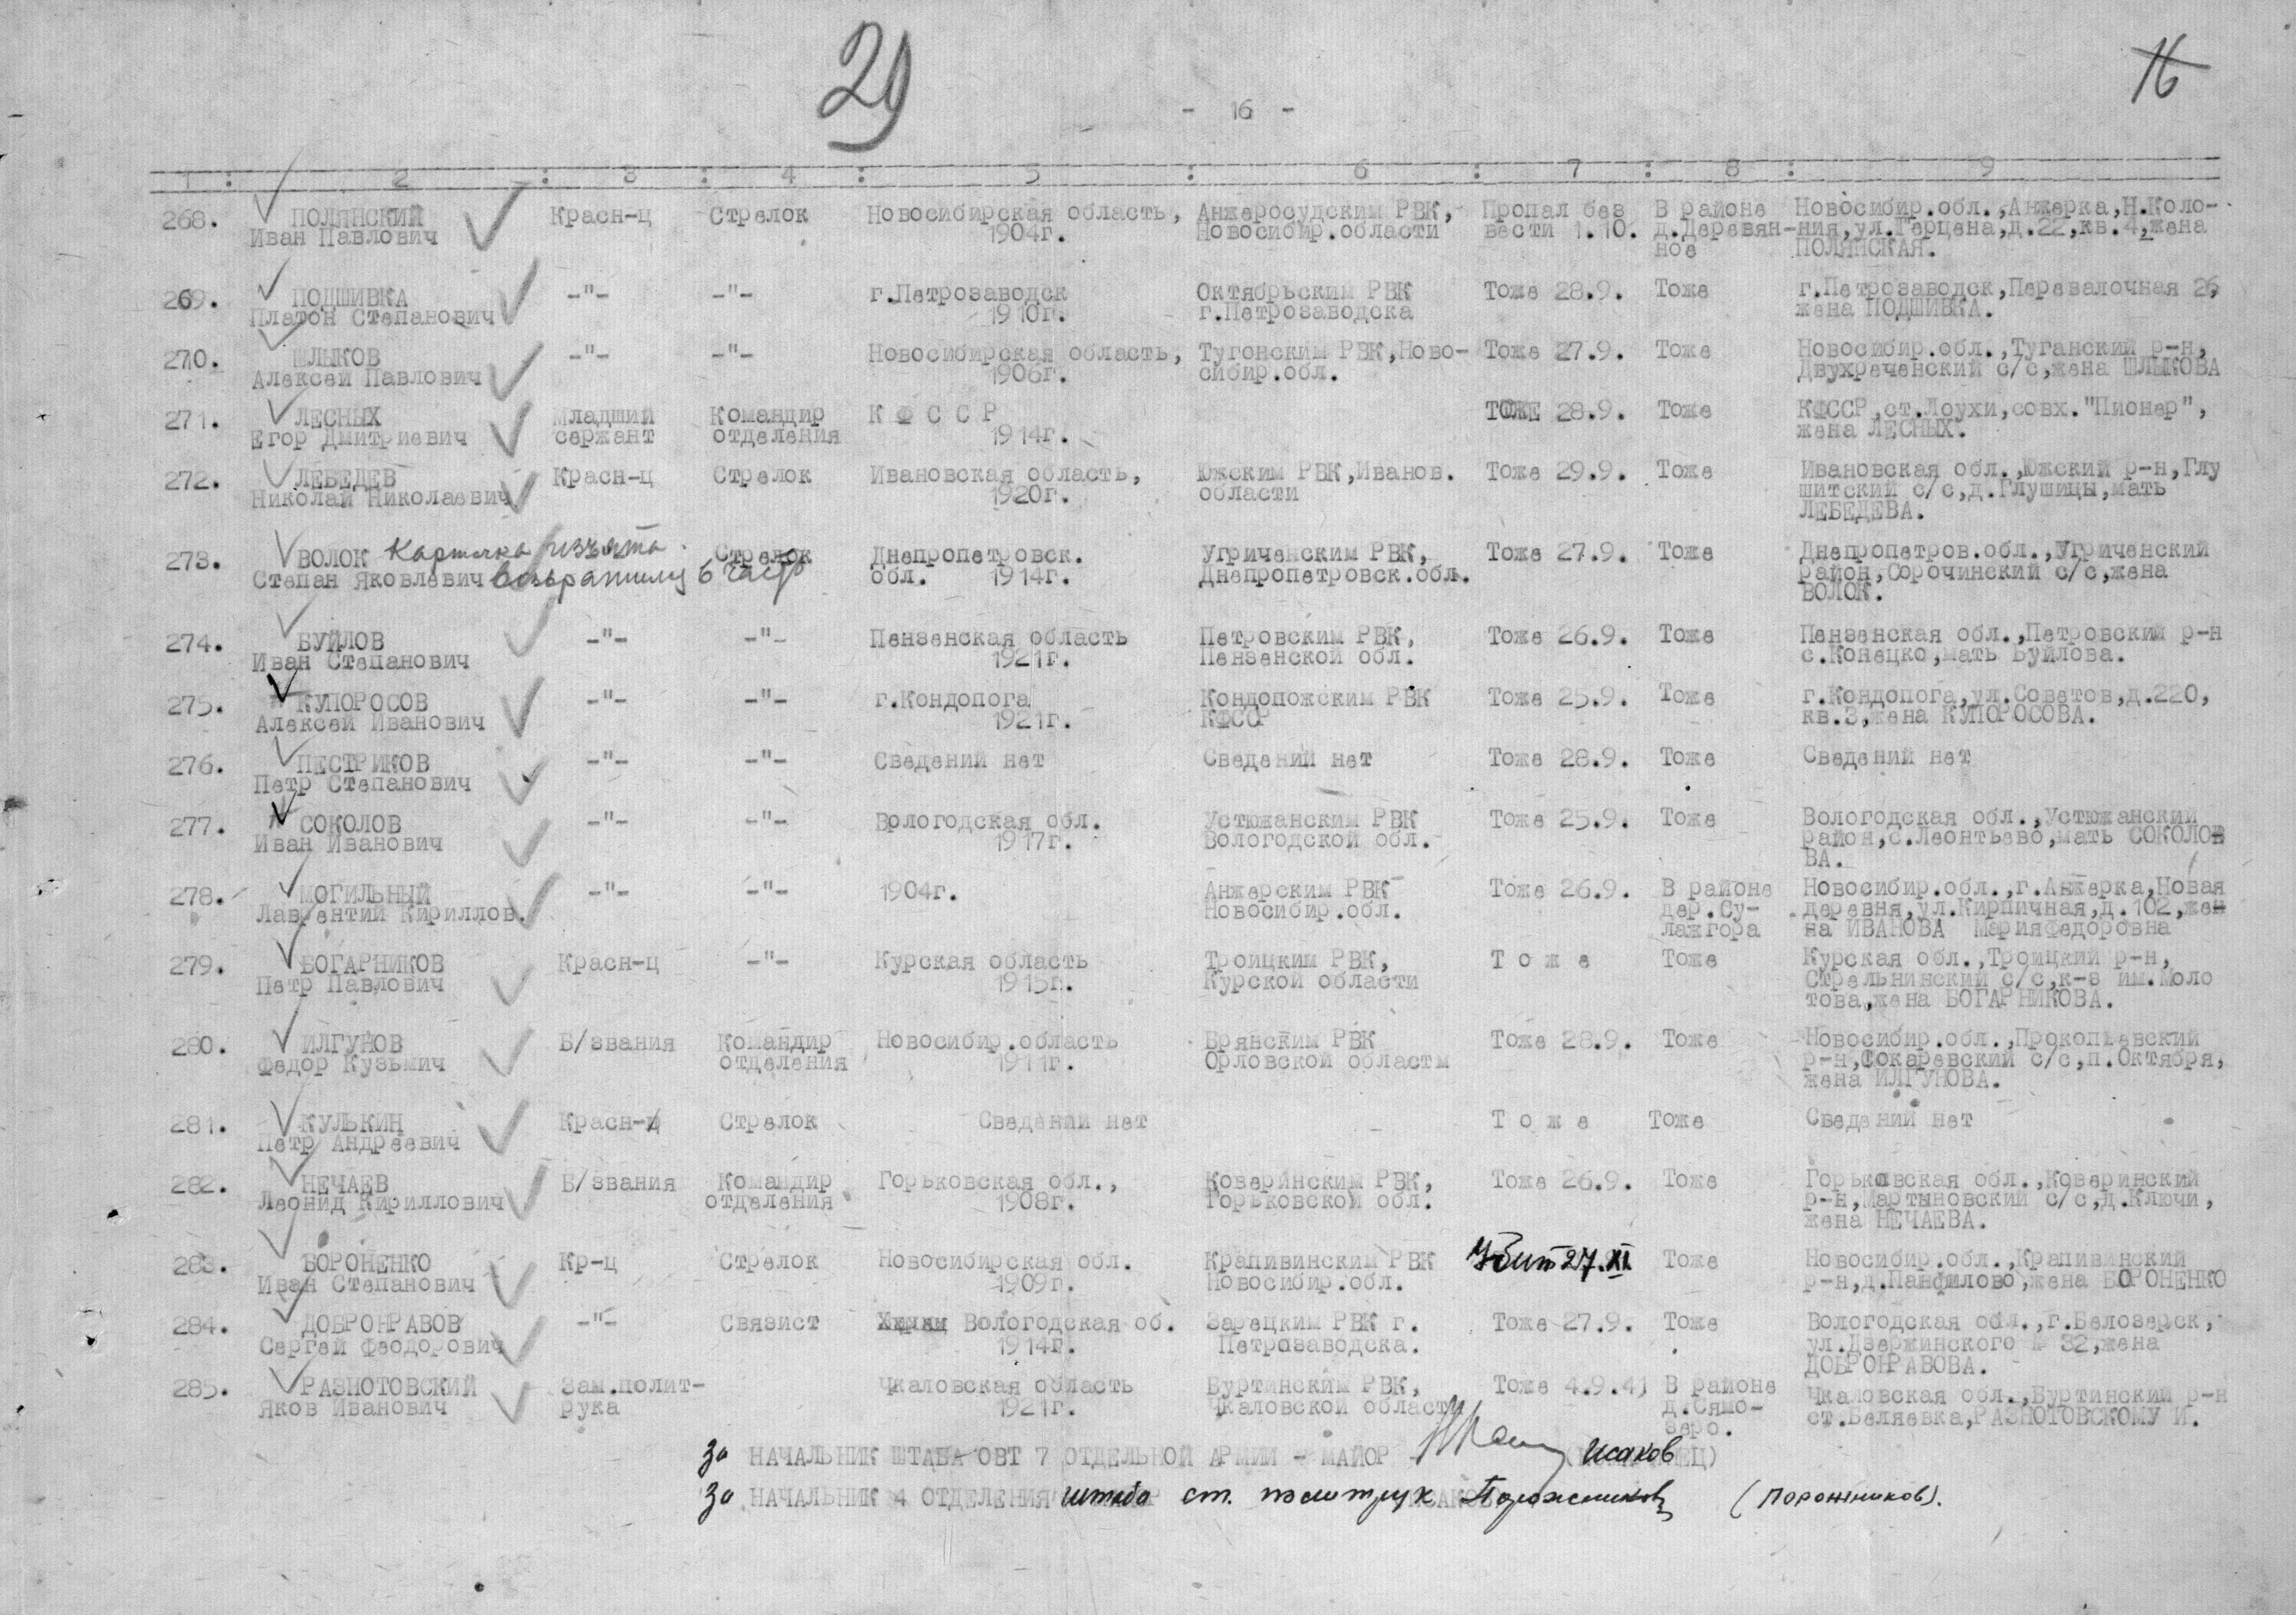 29
- 16 -
16
1 : 2 : 3 : 4 : 5 : 6 : 7 : 8 : 9
268. ПОЛЯНСКИЙ Красн-ц Стрелок Новосибирская область, Анжеросудским РВК, Пропал без В районе Новосибир.обл.,Анжерка,Н.Коло-
Иван Павлович 1904г. Новосибир.области вести 1.10. д.Деревян- ния,ул.Герцена,д.22,кв.4,жена
ное ПОЛЯНСКАЯ.
269. ПОДШИВКА -"- -"- г.Петрозаводск Октябрьским РВК Тоже 28.9. Тоже г.Петрозаводск,Перевалочная 26,
Платон Степанович 1910г. г.Петрозаводска жена ПОДШИВКА.
270. ШЛЫКОВ -"- -"- Новосибирская область, Тугонским РВК,Ново- Тоже 27.9. Тоже Новосибир.обл.,Туганский р-н,
Алексей Павлович 1906г. сибир.обл. Двухреченский с/с,жена ШЛЫКОВА
271. ЛЕСНЫХ Младший Командир К Ф С С Р ТОЖЕ 28.9. Тоже КФССР,ст.Лоухи,совх."Пионер",
Егор Дмитриевич сержант отделения 1914г. жена ЛЕСНЫХ.
272. ЛЕБЕДЕВ Красн-ц Стрелок Ивановская область, Южским РВК,Иванов. Тоже 29.9. Тоже Ивановская обл.,Южский р-н,Глу
Николай Николаевич 1920г. области шитский с/с,д.Глушицы,мать
ЛЕБЕДЕВА.
273. ВОЛОК Карточка изъята. Стрелок Днепропетровск. Угриченским РВК, Тоже 27.9. Тоже Днепропетров.обл.,Угриченский
Степан Яковлевич возвратился в часть обл. 1914г. Днепропетровск.обл. район,Сорочинский с/с,жена
ВОЛОК.
274. БУЙЛОВ -"- -"- Пензенская область Петровским РВК, Тоже 26.9. Тоже Пензенская обл.,Петровский р-н
Иван Степанович 1921г. Пензенской обл. с.Конецко,мать Буйлова.
275. КУПОРОСОВ -"- -"- г.Кондопога Кондопожским РВК Тоже 25.9. Тоже г.Кондопога,ул.Советов,д.220,
Алексей Иванович 1921г. КФССР кв.3,жена КУПОРОСОВА.
276. ПЕСТРИКОВ -"- -"- Сведений нет Сведений нет Тоже 28.9. Тоже Сведений нет
Петр Степанович
277. СОКОЛОВ -"- -"- Вологодская обл. Устюжанским РВК Тоже 25.9. Тоже Вологодская обл.,Устюжанский
Иван Иванович 1917г. Вологодской обл. район,с.Леонтьево,мать СОКОЛОВ
ВА.
278. МОГИЛЬНЫЙ -"- -"- 1904г. Анжерским РВК Тоже 26.9. В районе Новосибир.обл.,г.Анжерка,Новая
Лаврентий Кириллов. Новосибир.обл. дер.Су- деревня,ул.Кирпичная,д.102,жен
лажгора на ИВАНОВА МарияФедоровна
279. БОГАРНИКОВ Красн-ц -"- Курская область Троицким РВК, Т о ж е Тоже Курская обл.,Троицкий р-н,
Петр Павлович 1915г. Курской области Стрельнинский с/с,к-з им.Моло
това,жена БОГАРНИКОВА.
280. ИЛГУНОВ Б/звания Командир Новосибир.область Брянским РВК Тоже 28.9. Тоже Новосибир.обл.,Прокопьевский
Федор Кузьмич отделения 1911г. Орловской области р-н,Токаревский с/с,п.Октября,
жена ИЛГУНОВА.
281. КУЛЬКИН Красн-ц Стрелок Сведений нет Т о ж е Тоже Сведений нет
Петр Андреевич
282. НЕЧАЕВ Б/звания Командир Горьковская обл., Коверинским РВК, Тоже 26.9. Тоже Горьковская обл.,Коверинский
Леонид Кириллович отделения 1908г. Горьковской обл. р-н,Мартыновский с/с,д.Ключи,
жена НЕЧАЕВА.
283. БОРОНЕНКО Кр-ц Стрелок Новосибирская обл. Крапивинским РВК Убит 27.XI. Тоже Новосибир.обл.,Крапивинский
Иван Степанович 1909г. Новосибир.обл. р-н,д.Панфилово,жена БОРОНЕНКО
284. ДОБРОНРАВОВ -"- Связист Вологодская об. Зарецким РВК г. Тоже 27.9. Тоже Вологодская обл.,г.Белозерск,
Сергей Феодорович 1914г. Петрозаводска. ул.Дзержинского № 32,жена
ДОБРОНРАВОВА.
285. РАЗНОТОВСКИЙ Зам.полит- Чкаловская область Буртинским РВК, Тоже 4.9.41 В районе Чкаловская обл.,Буртинский р-н
Яков Иванович рука 1921г. Чкаловской области д.Сямо- ст.Беляевка,РАЗНОТОВСКОМУ И.
зеро.
За НАЧАЛЬНИК ШТАБА ОВТ 7 ОТДЕЛЬНОЙ АРМИИ - МАЙОР Исаков
За НАЧАЛЬНИК 4 ОТДЕЛЕНИЯ штаба ст. политрук Порожников (Порожников).